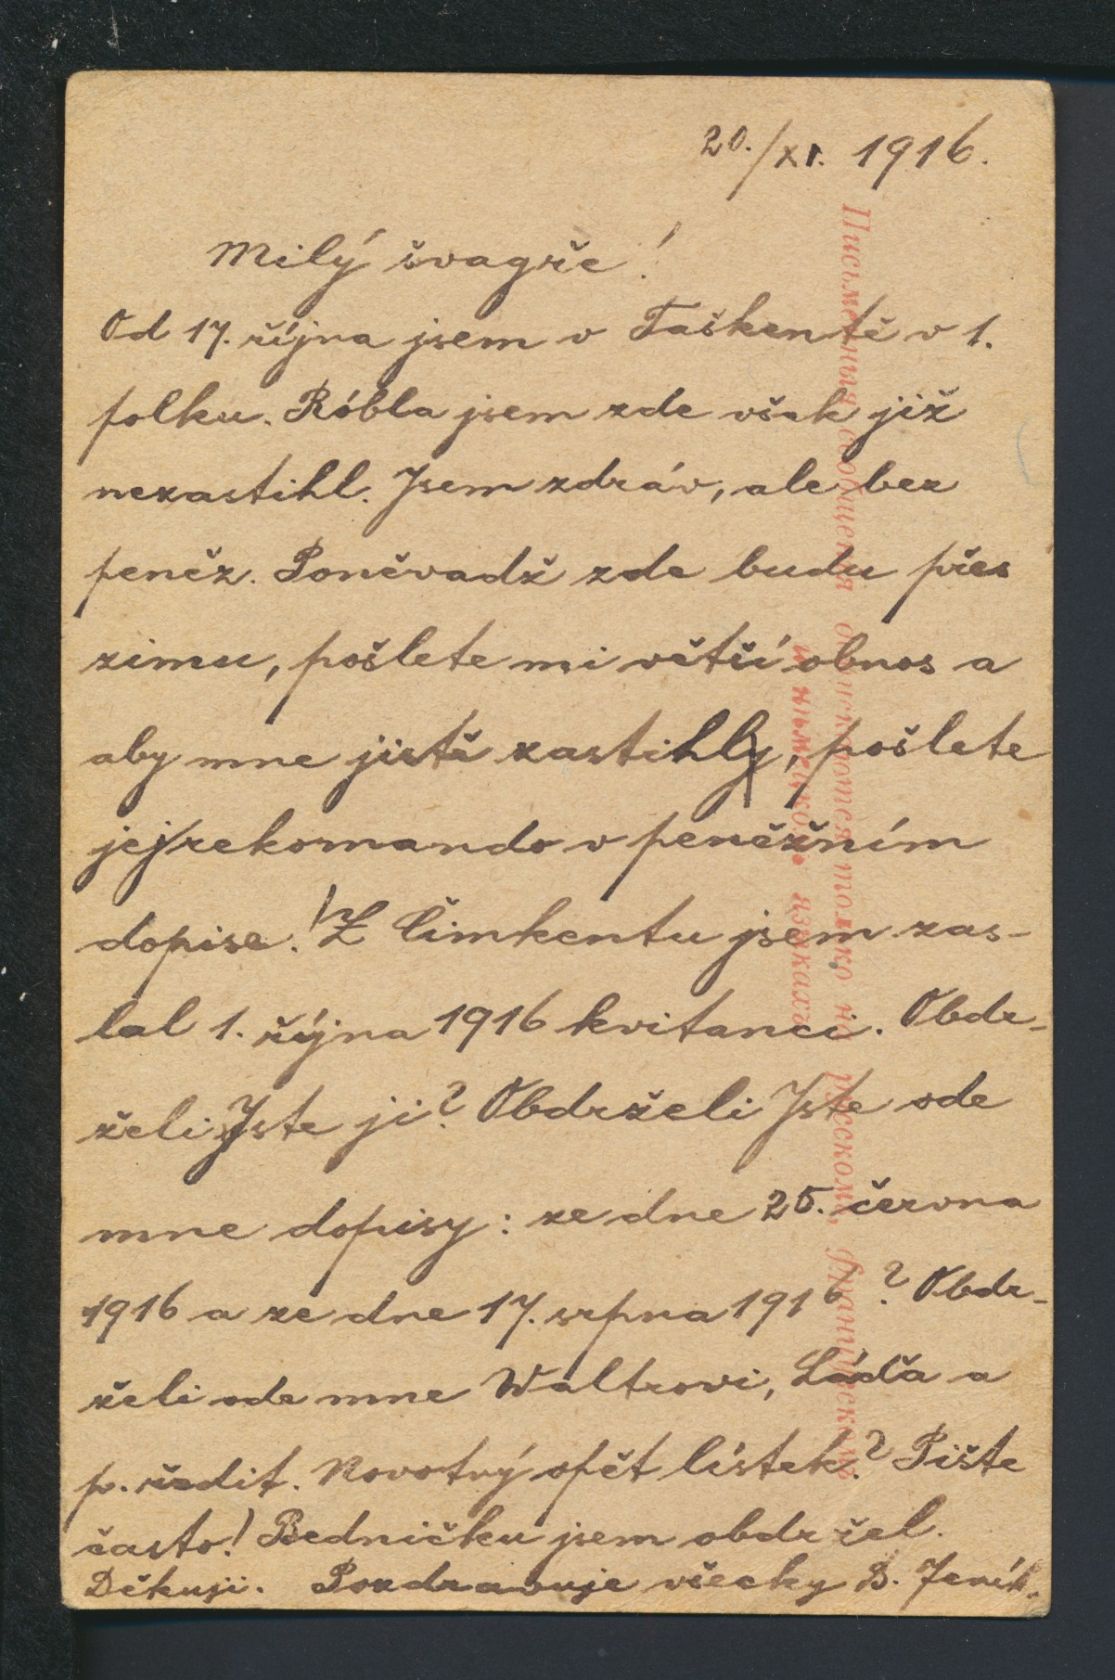 20./XI. 1916.
Milý švagře!
Od 17. října jsem v Taškentě v 1.
polku. Róbla jsem zde však již
nezastihl. Jsem zdráv, ale bez
peněz. Poněvadž zde budu přes
zimu, pošlete mi větší obnos a
aby mne jistě zastihly, pošlete
jej rekomando v peněžním
dopise! Z Čimkentu jsem zas-
lal 1. října 1916 kvitanci. Obdr-
želi Jste ji? Obdrželi Jste ode
mne dopisy: ze dne 25. června
1916 a ze dne 17. srpna 1916? Obdr-
želi ode mne Waltrovi, Láďa a
p. ředit. Novotný opět lístek? Pište
často! Bedničku jsem obdržel.
Děkuji. Pozdravuje všecky B. Jeník.
Письменныя сообщенія допускаются только на русскомъ, французскомъ
и нѣмецкомъ языкахъ